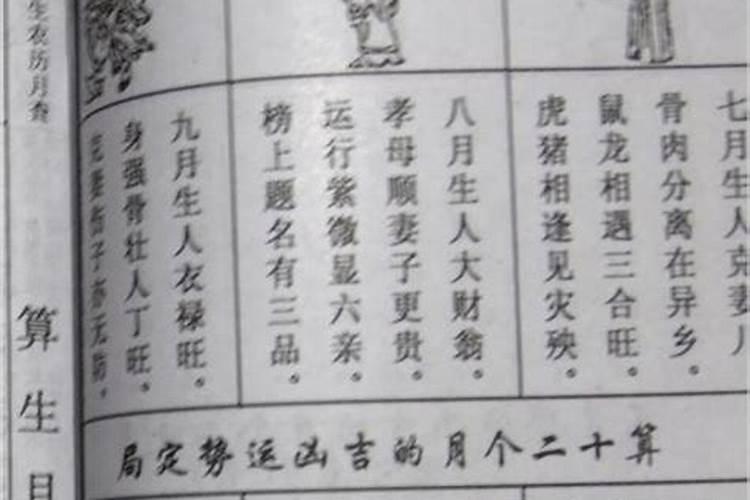 七月生人克妻儿
骨肉分离在异乡。
鼠龙相遇三合旺。
虎猪相逢见灾殃。
八月生人大财翁。
孝母顺妻子更贵。
运行紫微显六亲。
榜上题名有三品。
九月生人衣禄旺。
身强骨壮人丁旺。
克妻伤子亦无妨。
局定势运凶吉的月个二十算
生农历月
算生日